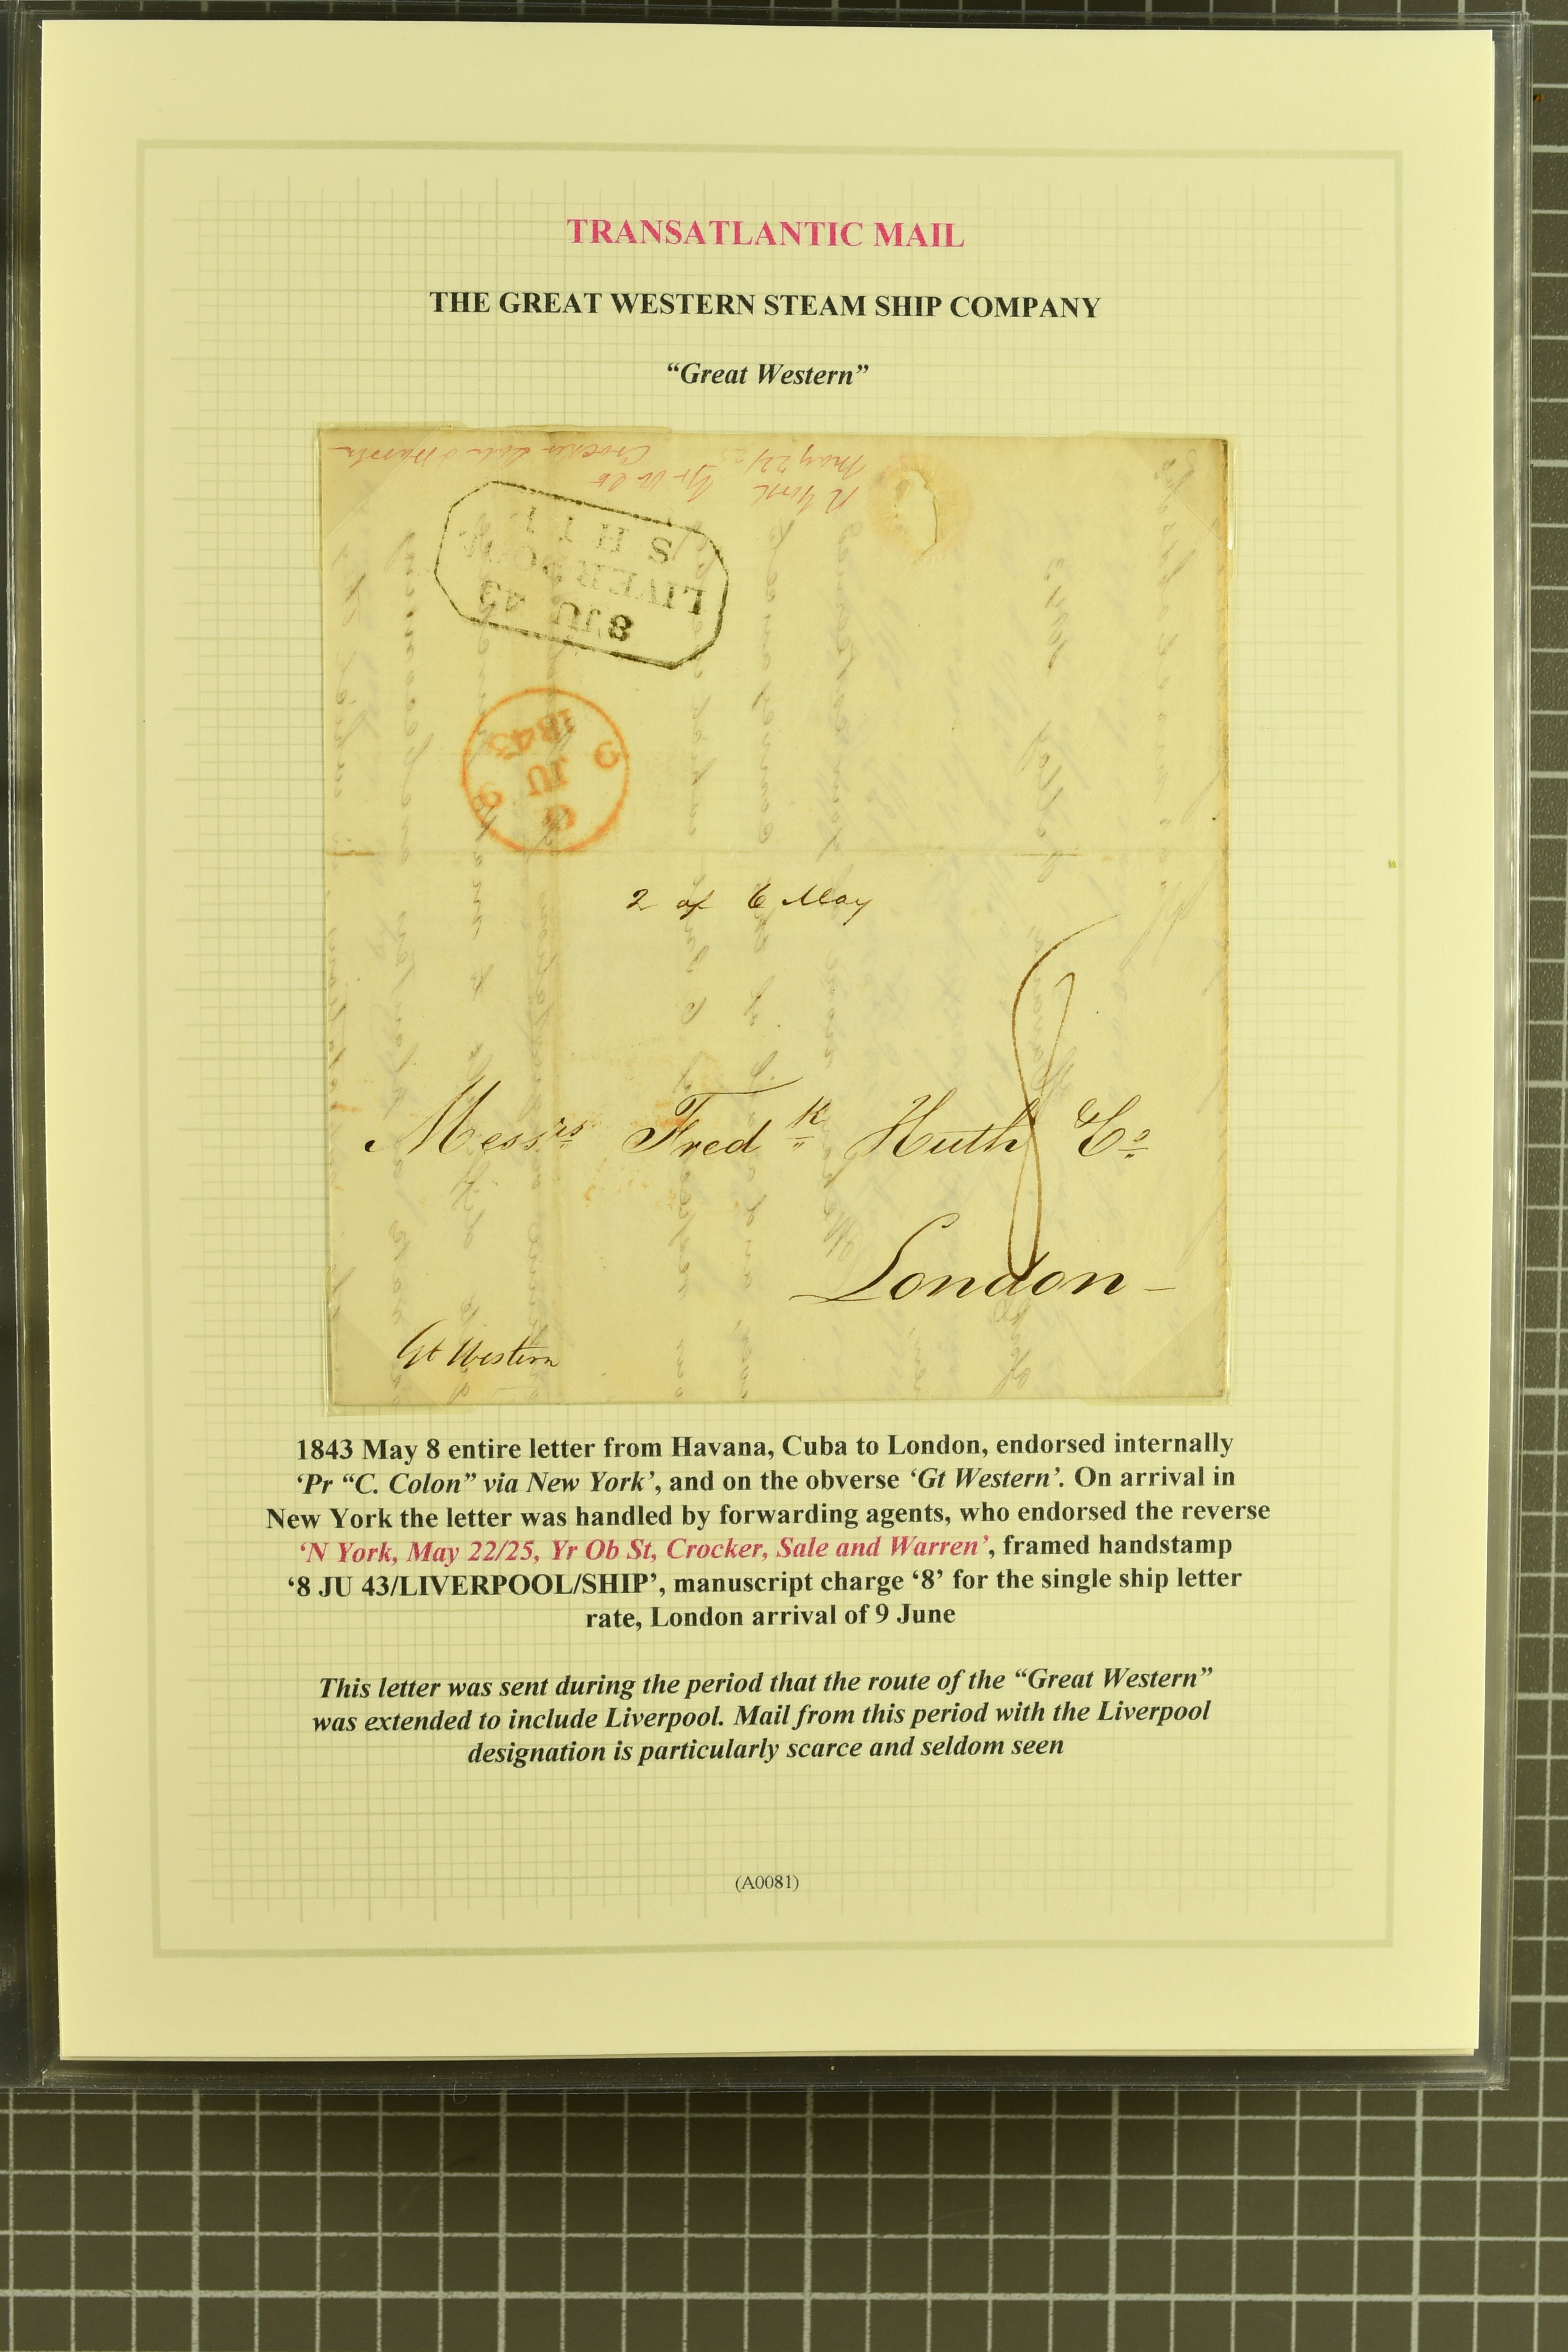 TRANSATLANTIC MAIL
THE GREAT WESTERN STEAM SHIP COMPANY
“Great Western”
Crocker Sale & Warren
May 22/25
N York
Yr Ob St
SHIP
LIVERPOOL
8 JU 43
1843
JU
9
2 of 6 May
8
Messrs Fredk Huth Co
London
Gt Western
1843 May 8 entire letter from Havana, Cuba to London, endorsed internally
‘Pr “C. Colon” via New York’, and on the obverse ‘Gt Western’. On arrival in
New York the letter was handled by forwarding agents, who endorsed the reverse
‘N York, May 22/25, Yr Ob St, Crocker, Sale and Warren’, framed handstamp
‘8 JU 43/LIVERPOOL/SHIP’, manuscript charge ‘8’ for the single ship letter
rate, London arrival of 9 June
This letter was sent during the period that the route of the “Great Western”
was extended to include Liverpool. Mail from this period with the Liverpool
designation is particularly scarce and seldom seen
(A0081)